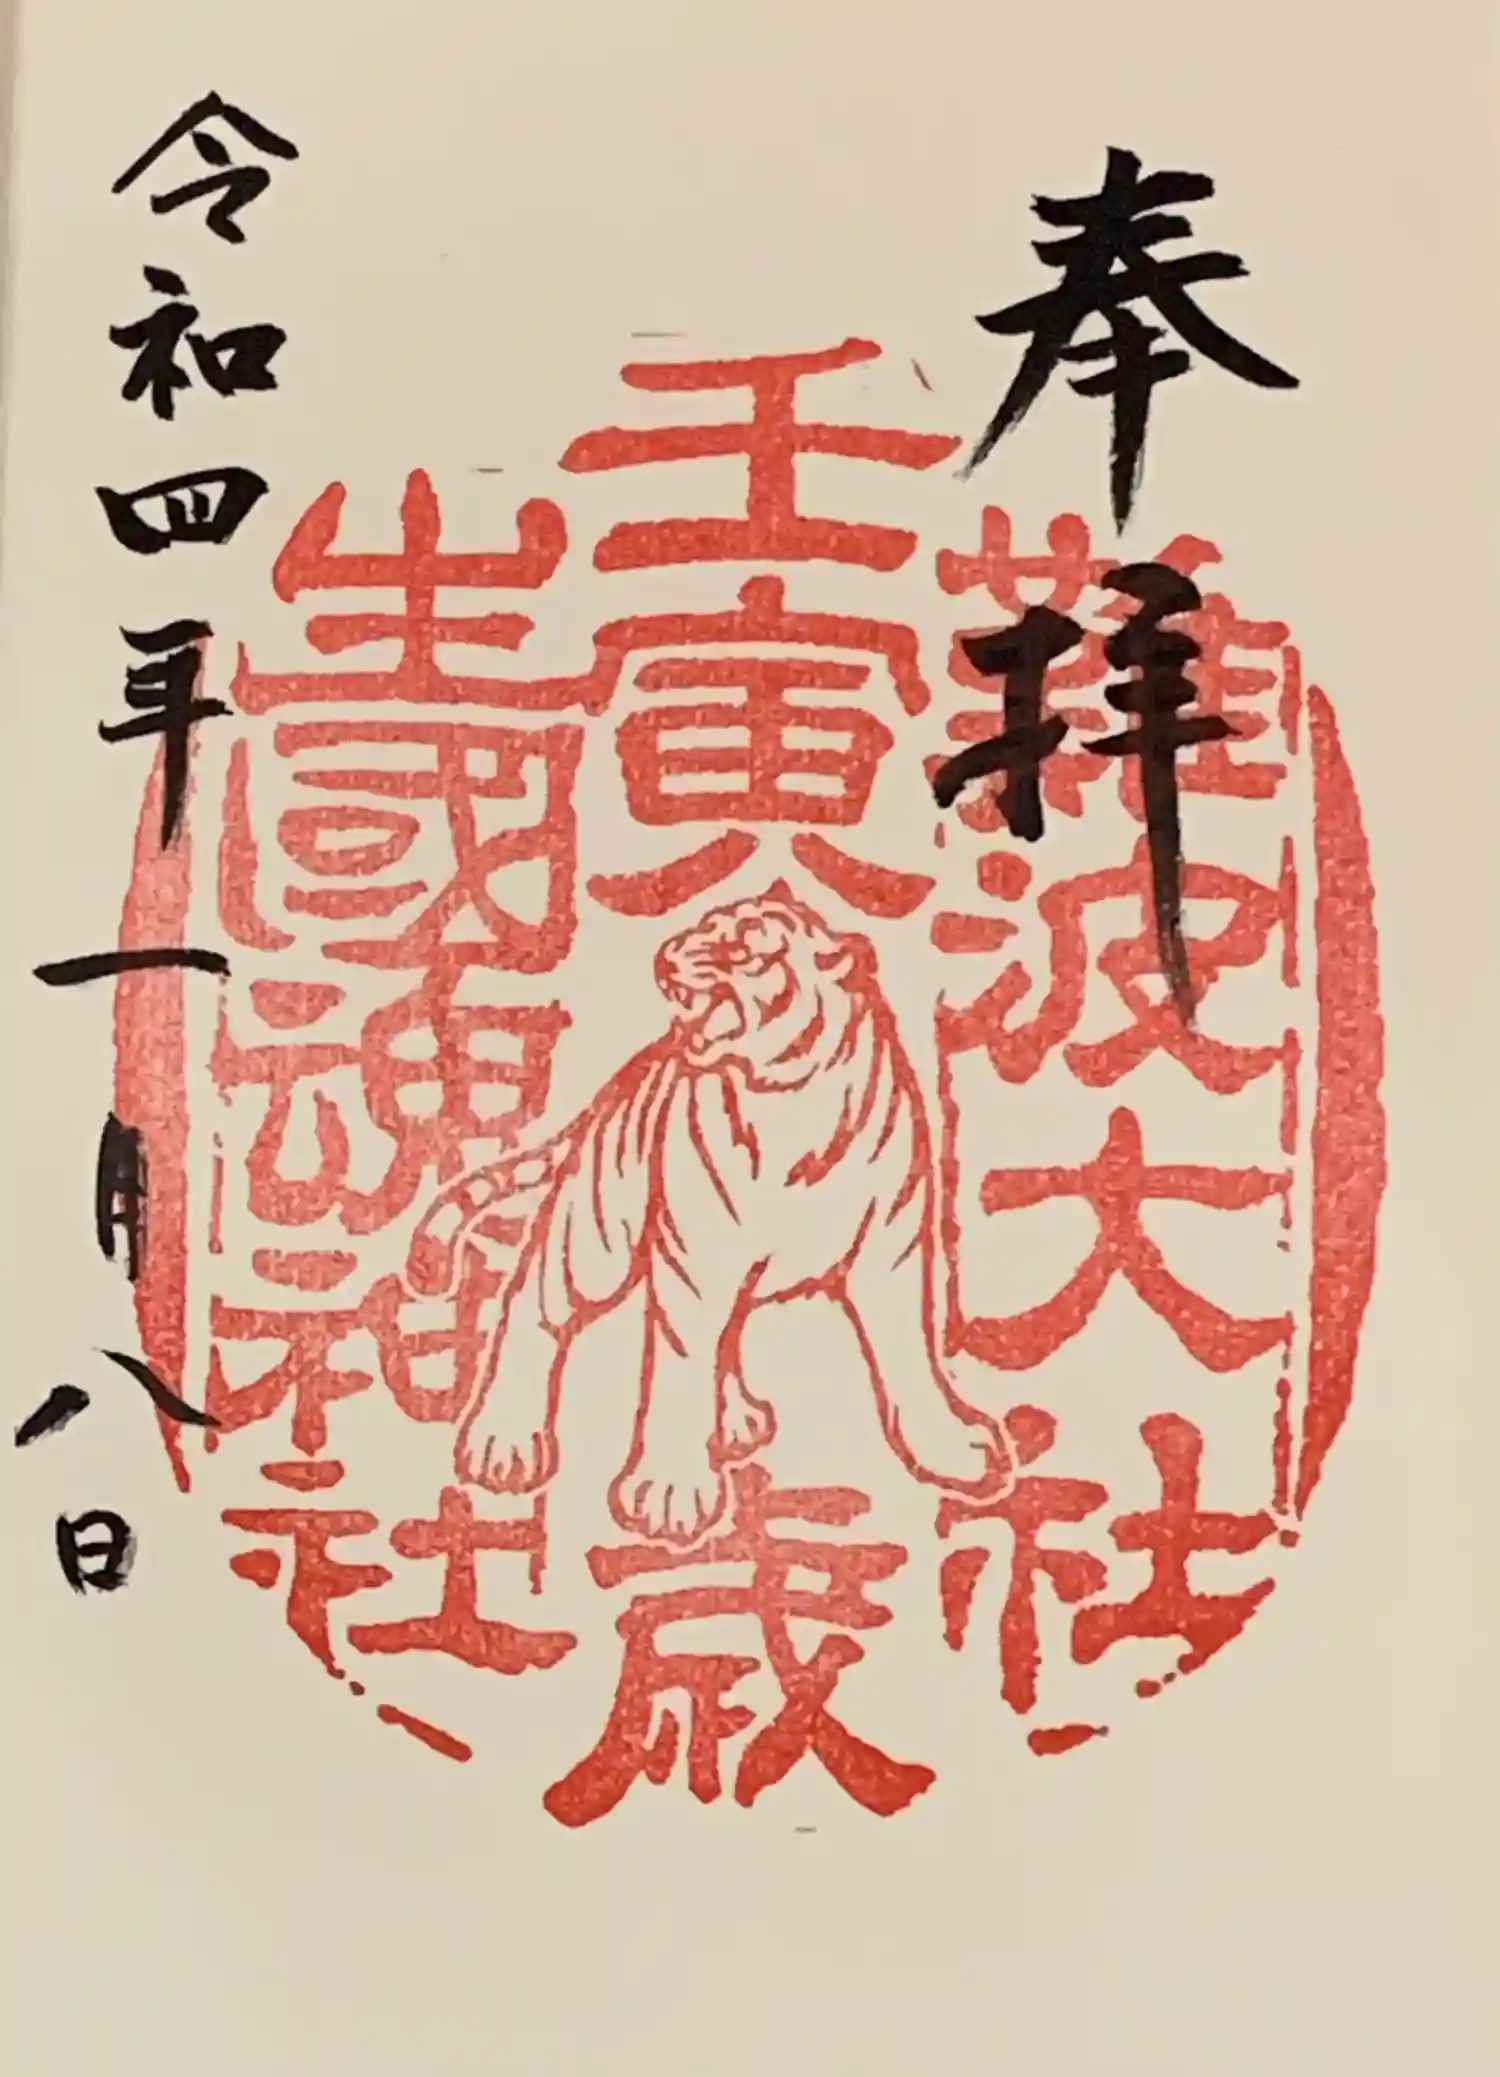 奉拝
難波大社
壬寅歳
生國魂神社
令和四年一月八日